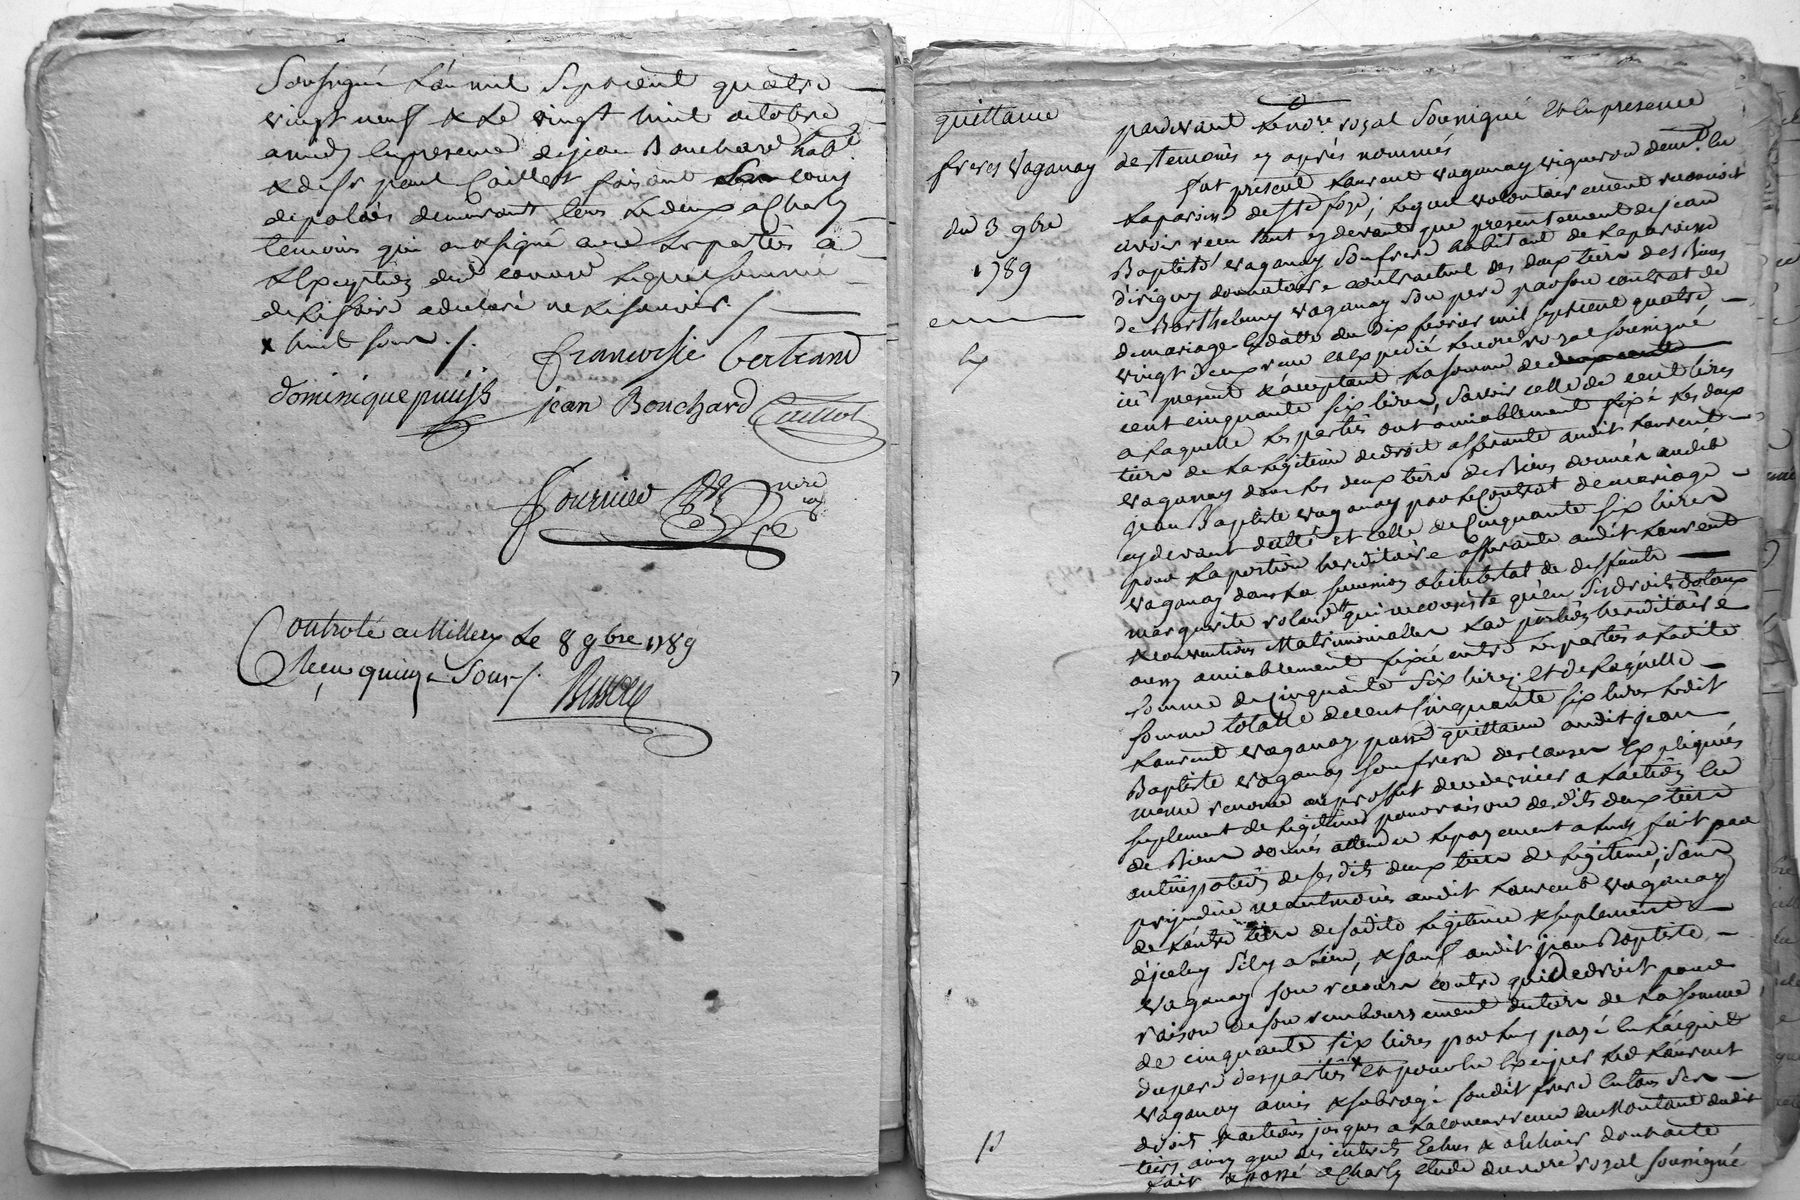 Soussigné L'an mil Sept cent quatre
vingt neuf & Le vingt huit octobre
amidy En presence de jean Bouchard habt
& de Sr paul Caillot faisant cour
de palais demeurant tous Les deux a Charly
temoins qui ont signé avec Les parties a
de Le faire a declaré ne Le scavoir ./.
x huit sous ./.
francoise bertrand
dominique puys
jean Bouchard Caillot
fournier nore
Controlé a Millery Le 8 9bre 1789
Recu quinze Sous ./.
quittance
freres Vaganay
du 3 9bre
1789
pardevant Le nore royal Soussigné Et En presence
des temoins cy après nommés
fut présent Laurent vaganay vigneron demt. En
La paroisse de Ste foye; Lequel volontairement reconnoit
avoir recu tant cy devant que presentement de jean
Baptiste vaganay Son frere habitant de La paroisse
d'irigny donnataire contractuel des deux tiers des Biens
de Barthelemy vaganay Son pere par son contrat de
de mariage En datte du dix fevrier mil Sept cent quatre
vingt deux recu et Expedié Le nore royal Soussigné
ici present & acceptant La somme de deux cents
cent cinquante Six Livres, Savoir celle de cent Livres
a Laquelle Les parties ont amiablement fixé Les deux
tiers de La Legitime de droit afferante audit Laurent
vaganay dans Les deux tiers des Biens donnés audit
jean Baptiste vaganay par Le Contrat de mariage
cy devant datté et celle de Cinquante Six Livres
pour La portion hereditaire afferante audit Laurent
vaganay dans La succession abintestat de deffunte
marguerite roland qui ne consiste qu'en Ses droits dotaux
& conventions Matrimonialles Lad portion hereditaire
aussy amiablement fixée entre Les parties a Ladite
somme de Cinquante Six Livres. et de Laquelle
somme totalle de cent Cinquante six Livres Ledit
Laurent vaganay passe quittance audit jean
Baptiste vaganay Son frere des causes Expliquées
meme renonce au proffit de ce dernier a L'action En
suplement de Legitime pour raison desdits deux tiers
de Biens donnés attendu Le payement a Luy fait par
anticipation desdits deux tiers de Legitime; Sans
prejudice neantmoins audit Laurent vaganay
de L'autre tiers de Sadite Legitime & suplement
d'jcelle S'il y a Lieu, & sauf audit jean Baptiste
vaganay son recours contre qui de droit pour
raison de son remboursement du tiers de La Somme
de cinquante Six Livres par Luy payé En L'acquit
du pere des parties et pour En Exiper Led Laurent
vaganay a mis & subrogé Sondit frere En tous Ses
droits & actions jusques a La concurrence du Montant dudit
tiers ainsy que des interets Echus & a Echoir dont acte
fait & passé a Charly etude du nore royal Soussigné